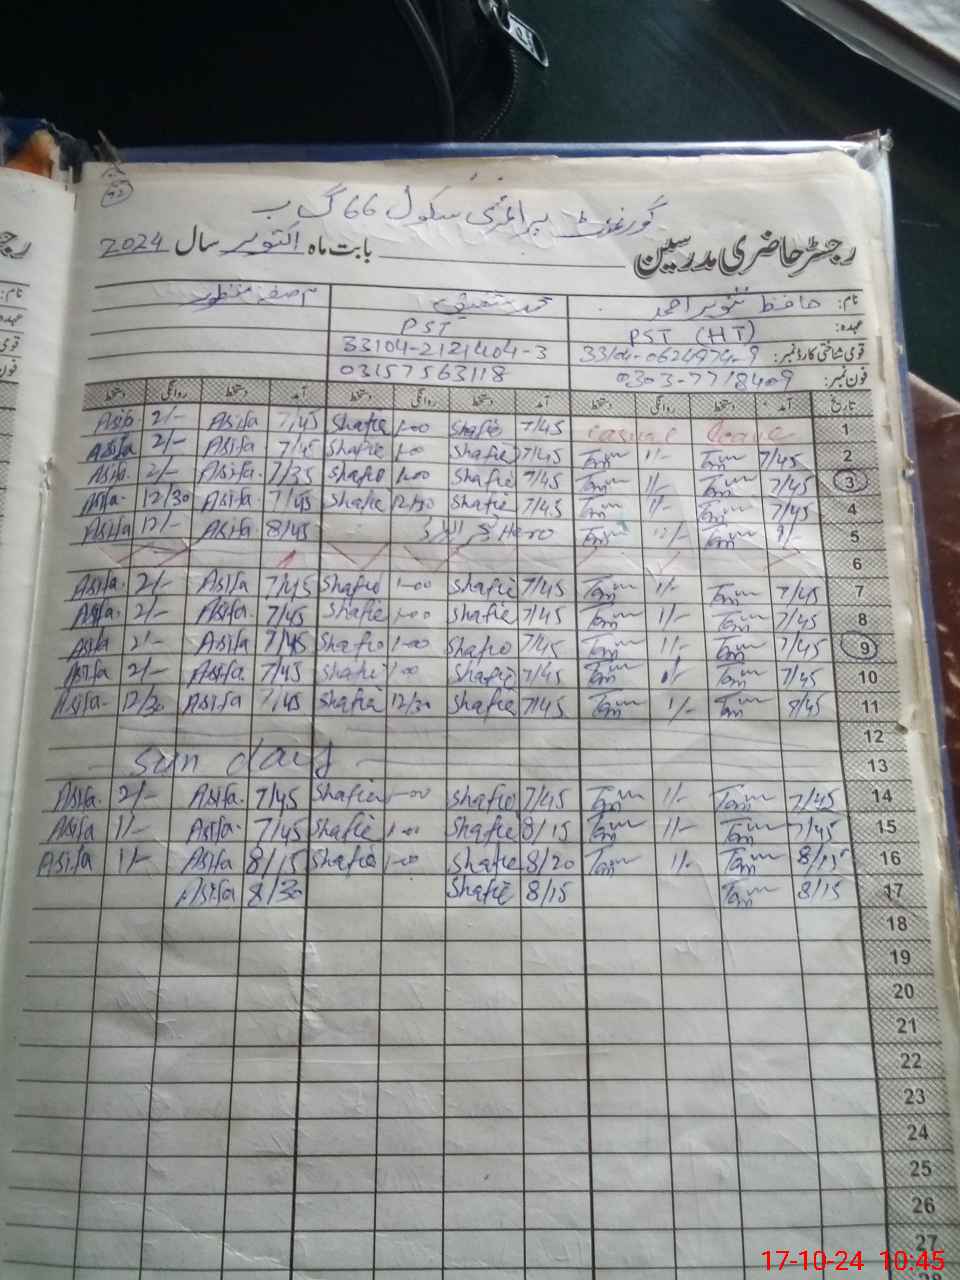 92
گورنمنٹ پرائمری سکول 66 گ ب
رجسٹر حاضری مدرسین بابت ماہ اکتوبر سال 2024
نام: حافظ تنویر احمد محمد شفیق آصفہ منظور
عہدہ: PST (HT) PST
قومی شناختی کارڈ نمبر: 33104-0624974-9 33104-2121404-3
فون نمبر: 0303-7718409 03157563118
تاریخ آمد دستخط روانگی دستخط آمد دستخط روانگی دستخط آمد دستخط روانگی دستخط
Asifa 2/- Asifa 7/45 Shafie 1-00 Shafie 7/45 Casual Leave 1
Asifa 2/- Asifa 7/45 Shafie 1-00 Shafie 7/45 1/- 7/45 2
Asifa 2/- Asifa 7/35 Shafie 1-00 Shafie 7/45 1/- 7/45 3
Asifa 12/30 Asifa 7/45 Shafie 12/30 Shafie 7/45 1/- 7/45 4
Asifa 12/- Asifa 8/45 Hero 12/- 5
6
Asifa 2/- Asifa 7/45 Shafie 1-00 Shafie 7/45 1/- 7/45 7
Asifa 2/- Asifa 7/45 Shafie 1-00 Shafie 7/45 1/- 7/45 8
Asifa 2/- Asifa 7/45 Shafie 1-00 Shafie 7/45 1/- 7/45 9
Asifa 2/- Asifa 7/45 Shafie 1-00 Shafie 7/45 1/- 7/45 10
Asifa 12/30 Asifa 7/45 Shafie 12/30 Shafie 7/45 1/- 8/45 11
12
Sunday 13
Asifa 2/- Asifa 7/45 Shafie 1-00 Shafie 7/45 1/- 7/45 14
Asifa 1/- Asifa 7/45 Shafie 1-00 Shafie 8/15 1/- 7/45 15
Asifa 1/- Asifa 8/15 Shafie 1-00 Shafie 8/20 1/- 8/15 16
Asifa 8/30 Shafie 8/15 8/15 17
18
19
20
21
22
23
24
25
26
27
17-10-24 10:45